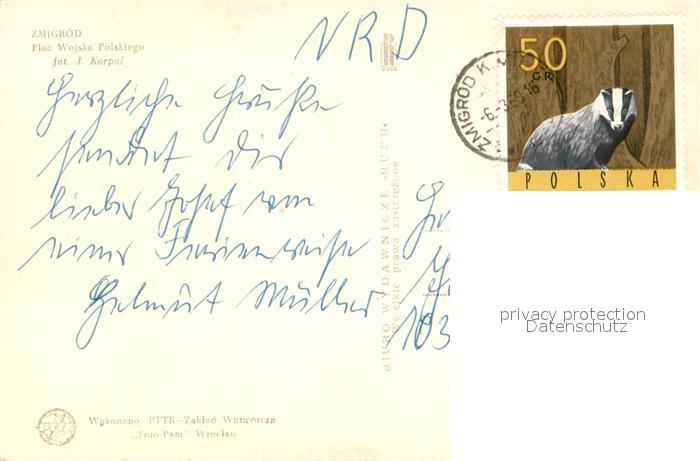 ŻMIGRÓD
Plac Wojska Polskiego
fot. J. Korpal
NRD
Herzliche Grüße
sendet dir
lieber Josef von
einer Ferienreise
Helmut Müller
BIURO WYDAWNICZE „RUCH"
Wszelkie prawa zastrzeżone
ŻMIGRÓD K.
50
GR
POLSKA
103
privacy protection
Datenschutz
Wykonano: PTTK—Zakład Wytwórczy
„Foto-Pam" Wrocław